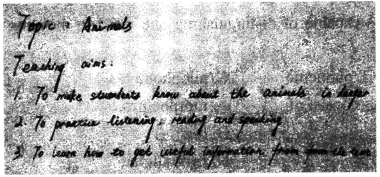 Topic: Animals
Teaching aims:
1. To make stuendents know about the animals in deeper
2. To practice listening, reading and speaking
3. To learn how to get useful information from the text